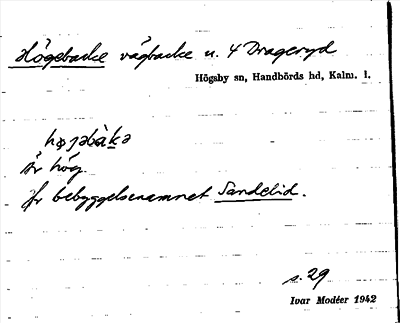 Högebacke vägbacke u. 4 Drageryd
Högsby sn, Handbörds hd, Kalm. l.
Är hög.
Jfr bebyggelsenamnet Sandelid.
s. 29
Ivar Modéer 1942